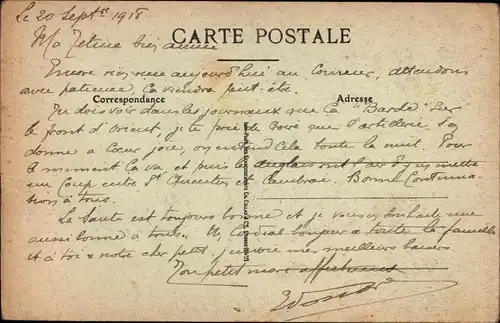 Le 20 Septbre 1918
CARTE POSTALE
Ma Petine bien aimée
Encore rien reçu aujourd'hui au courrier, attendons
avec patience, ça viendra peut-être.
Correspondance
Adresse
Tu dois voir dans les journaux que ça "Barde" sur
le front d'Orient, je te prie de croire que l'artillerie s'en
donne à cœur joie, on entend cela toute la nuit. Pour
le moment ça va et puis les anglais ont l'air d'y en mettre
un coup entre St Quentin et Cambrai. Bonne Continua-
tion à tous.
La Santé est toujours bonne et je vous souhaite une
aussi bonne à tous. Un Cordial bonjour à toute la famille
et à toi & notre cher petit j'envoie mes meilleurs baisers
Ton petit mari affectionné